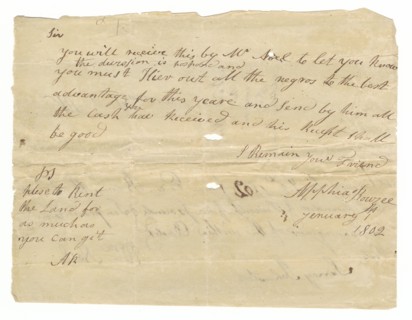 Sir
You will receive this by Mr Noel to let you know
the division is
you must Hier out all the negros to the best
advantage for this yeare and send by him all
the Cash you have Received and his Receipt Shall
be good
I Remain your Friend
Apphia Rouzee
January
1802
PS
plese to Rent
the Land for
as much as
you can git
AR